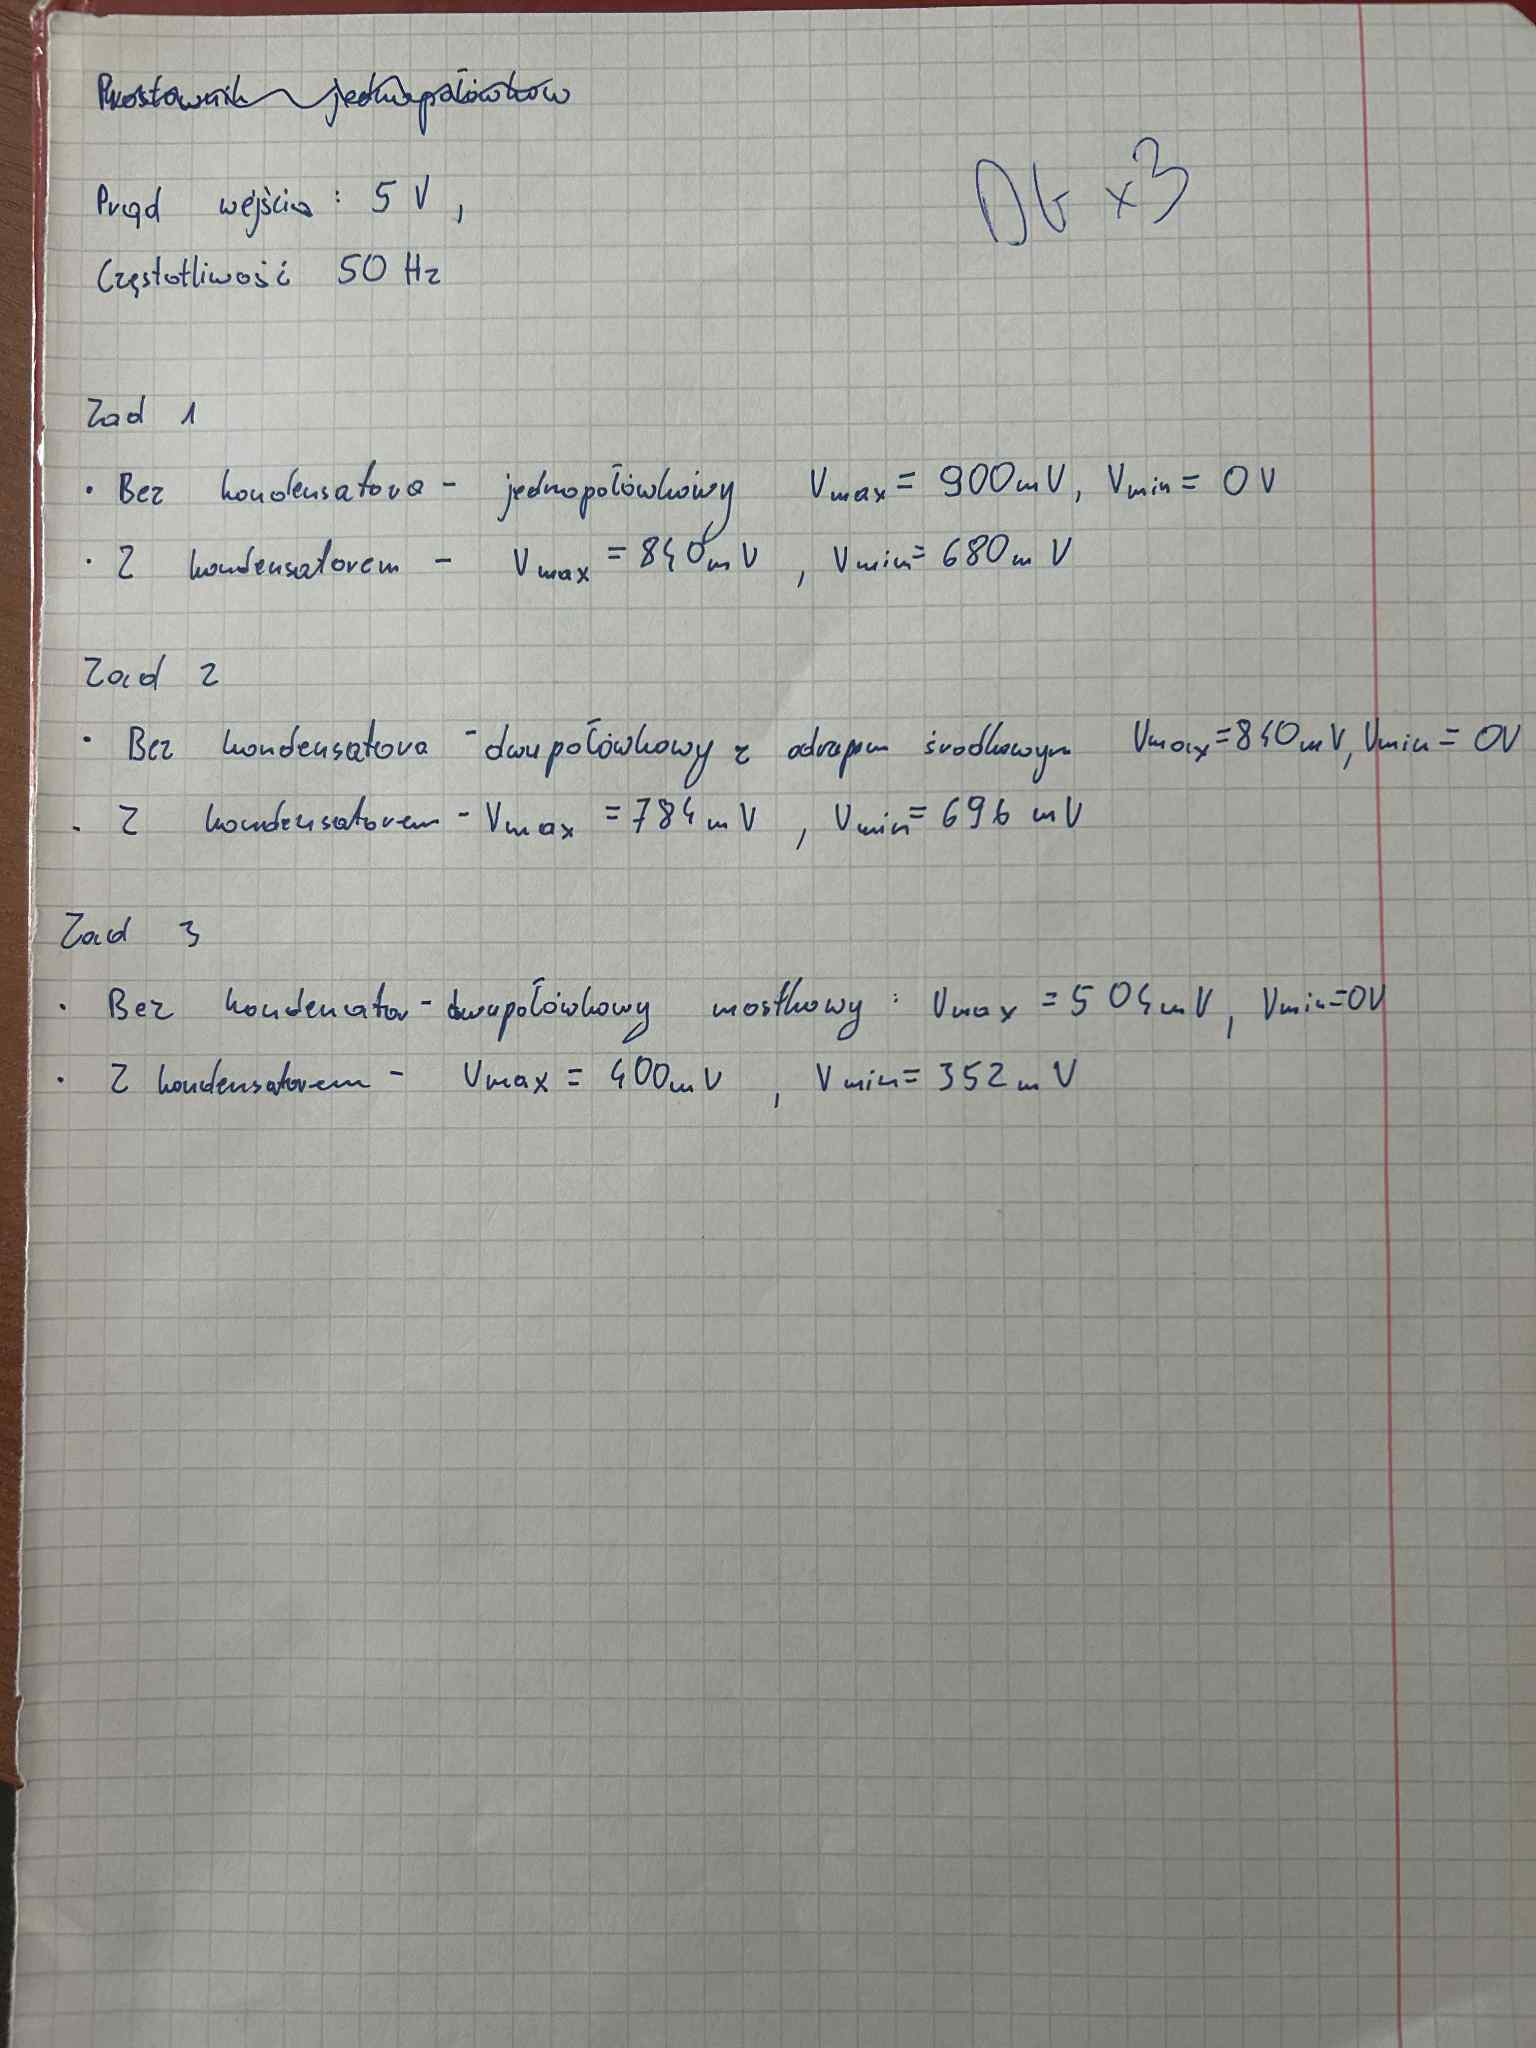 Prostownik jednopołówkow
Prąd wejścia : 5 V ,
x3
Częstotliwość 50 Hz
Zad 1
• Bez kondensatora - jednopołówkowy Vmax = 900mV, Vmin = 0 V
• Z kondensatorem - Vmax = 840mV , Vmin = 680m V
Zad 2
• Bez kondensatora - dwupołówkowy z odczepem środkowym Vmax = 840mV, Vmin = 0V
• Z kondensatorem - Vmax = 784 mV , Vmin = 696 mV
Zad 3
• Bez kondensator - dwupołówkowy mostkowy : Vmax = 504mV, Vmin=0V
• Z kondensatorem - Vmax = 400mV , Vmin = 352 mV